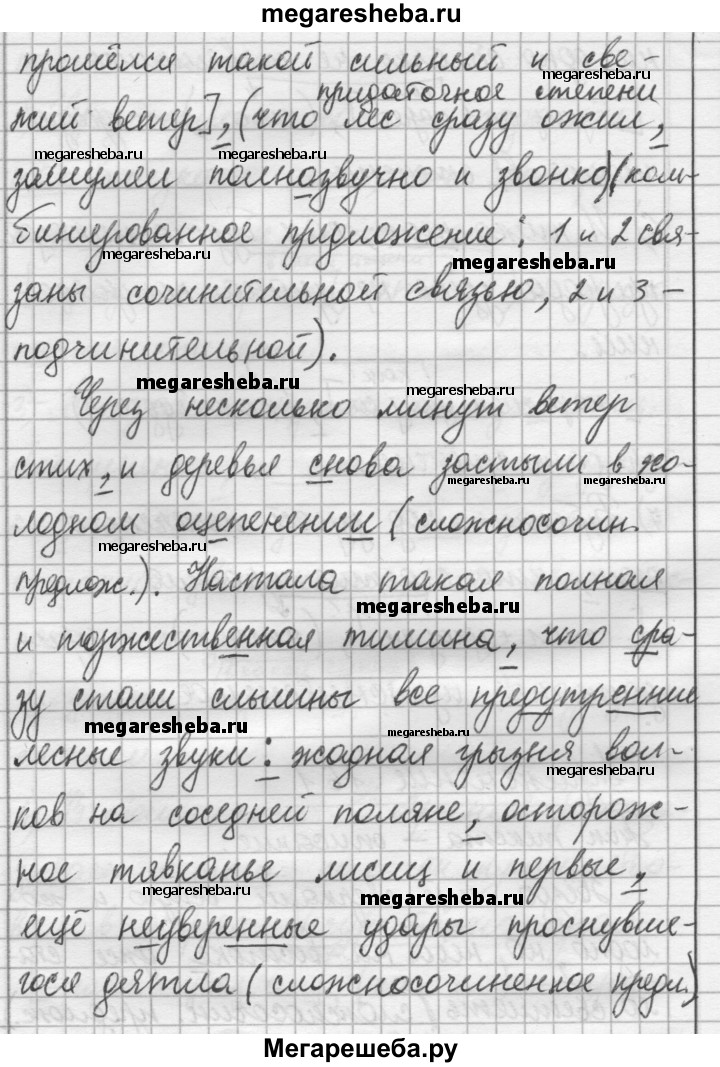 megaresheba.ru
прошёлся такой сильный и све-
megaresheba.ru
придаточное степени
жий ветер], (что лес сразу ожил,
megaresheba.ru megaresheba.ru
зашумел полнозвучно и звонко) (ком-
бинированное предложение: 1 и 2 свя-
megaresheba.ru megaresheba.ru
заны сочинительной связью, 2 и 3 -
подчинительной).
megaresheba.ru megaresheba.ru
Через несколько минут ветер
стих, и деревья снова застыли в хо-
megaresheba.ru megaresheba.ru
лодном оцепенении (сложносочин.
megaresheba.ru
предлож.). Настала такая полная
megaresheba.ru
и торжественная тишина, что сра-
зу стали слышны все предутренние
megaresheba.ru megaresheba.ru
лесные звуки: жадная грызня вол-
megaresheba.ru
ков на соседней поляне, осторож-
ное тявканье лисиц и первые,
megaresheba.ru megaresheba.ru
ещё неуверенные удары проснувше-
гося дятла (сложносочиненное предл.)
Мегарешеба.ру